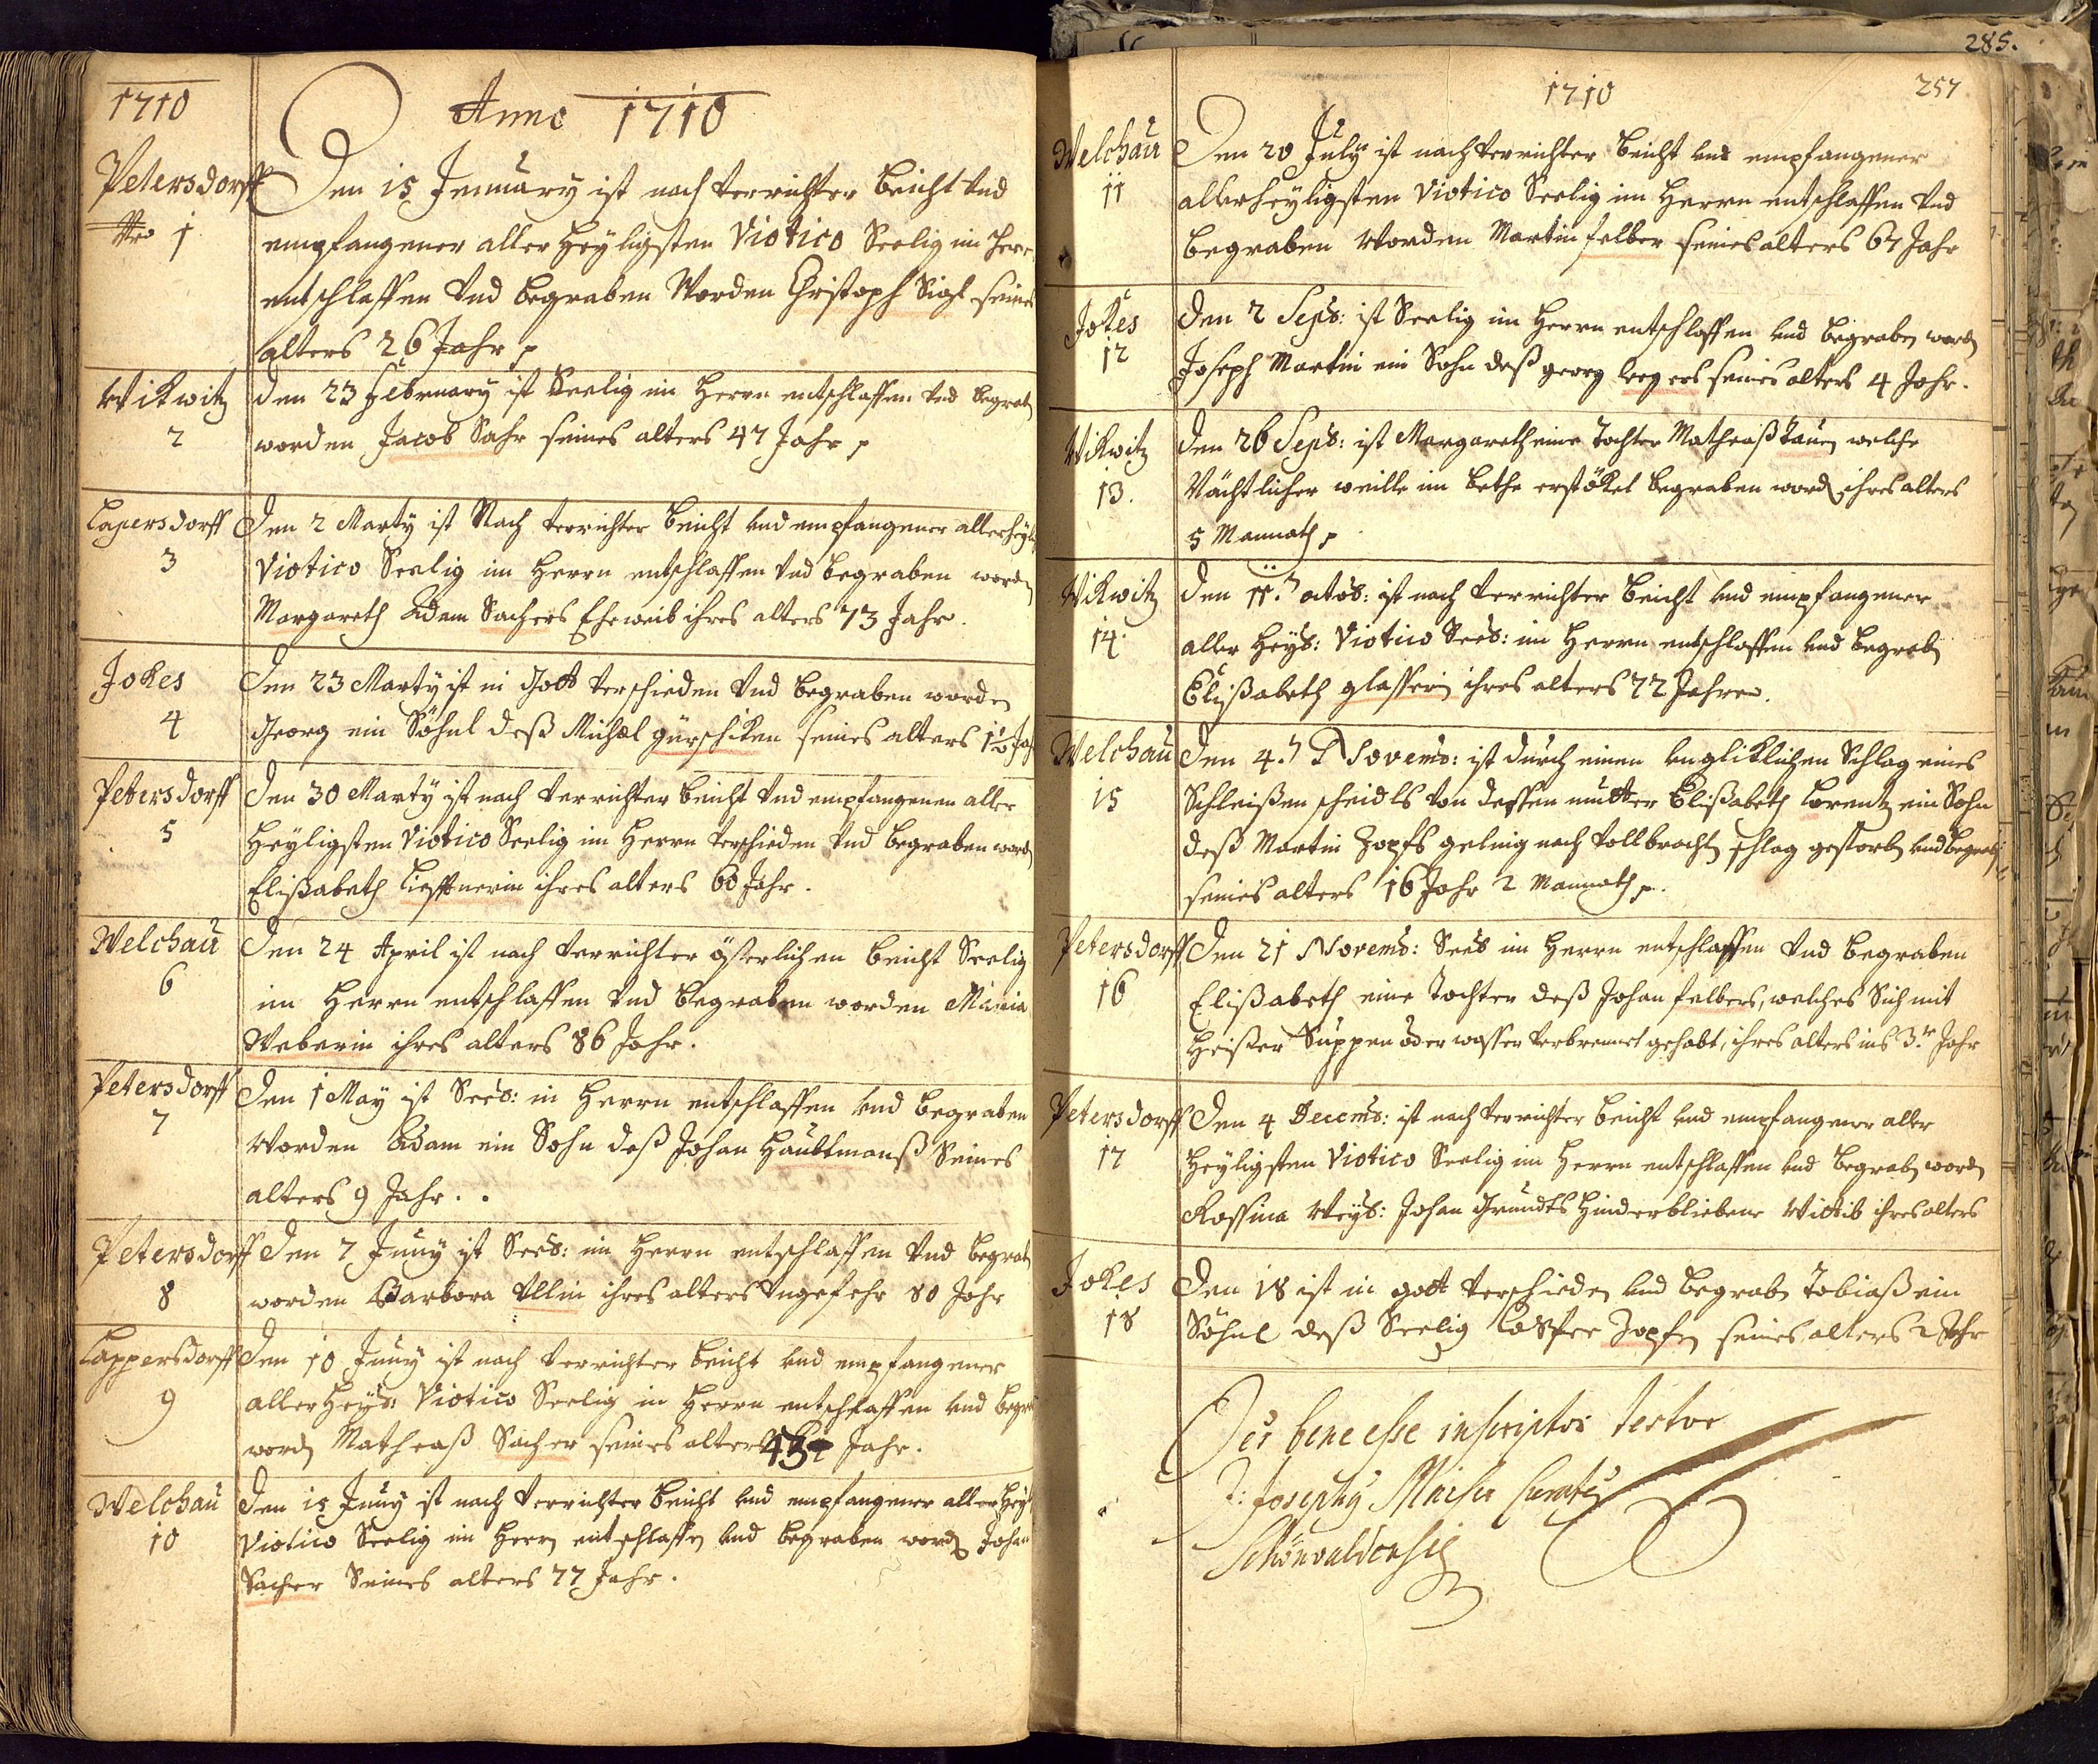 1710
Anno 1710
Petersdorff
Nro 1
Den 15 Jenuary ist nach verrichter Beicht vnd
empfangener allerheyligsten Viatico Seelig im Herrn
entschlaffen vnd begraben Worden Christoph Sigl seines
alters 26 Jahr
Wikwitz
2
den 23 February ist Seelig im Herrn entschlaffen vnd begrab
worden Jacob Sahr seines alters 47 Jahr
Lapersdorff
3
Den 2 Marty ist Nach verrichter Beicht vnd empfangener allerheylig
Viatico Seelig im Herrn entschlaffen vnd begraben word
Margareth Adam Sachers Eheweib ihres alters 73 Jahr.
Jokes
4
Den 23 Marty ist in Gott verschieden vnd begraben worden
Georg ein Söhnl deß Michael seines alters 1½ Jahr
Petersdorff
5
Den 30 Marty ist nach verrichter beicht vnd empfangenen aller
heyligsten Viatico Seelig im Herrn verschieden vnd begraben word
Elißabeth ihres alters 60 Jahr.
Welchau
6
Den 24 April ist nach verrichter österlichen Beicht Seelig
im Herrn entschlaffen vnd begraben worden Maria
Weberin ihres alters 86 Jahr.
Petersdorff
7
Den 1 May ist Seel: in Herrn entschlaffen vnd begraben
Worden Adam ein Sohn deß Johan Haubtmanß Seines
alters 9 Jahr..
Petersdorff
8
Den 7 Juny ist Seel: im Herrn entschlaffen vnd begrab
worden Barbara Ullin ihres alters vngefehr 80 Jahr
Lappersdorff
9
Den 10 Juny ist nach verrichter Beicht vnd empfangener
aller Heyl: Viatico Seelig in Herrn entschlaffen vnd begr
word Matheaß Sacher seines alters Jahr.
Welchau
10
den 15 Juny ist nach verrichter Beicht vnd empfangener aller Heyl
Viatico Seelig im Herrn entschlaffen vnd begraben word Johan
Sacher Seines alters 77 Jahr.
285.
1710
257
Welchau
11
Den 20 July ist nach verrichter Beicht vnd empfangener
allerheyligsten Viatico Seelig im Herrn entschlaffen vnd
begraben Worden Martin felber seines alters 67 Jahr
Jokes
12
Den 2 Sepb: ist Seelig im Herrn entschlaffen vnd begraben word
Joseph Martin ein Sohn deß georg seines alters 4 Jahr.
Wikwitz
13.
Den 26 Sepb: ist Margareth eine Tochter Matheaß welche
Nächtlicher weille im bethe erstöket begraben word ihres alters
5 Mannath
Wikwitz
14.
den 11. octob: ist nach verrichter Beicht vnd empfangener
aller Heyl: Viatico Seel: im Herrn entschlaffen vnd begrab
Elißabeth glasserin ihres alters 72 Jahre.
Welchau
15
Den 4. Novemb: ist durch einen vngliklichen Schlag eines
Schleißen scheidls von dessen mutter Elißabeth Lorentz ein Sohn
deß Martin Zopfs gelnig nach vollbracht schlag gestorb vnd begrab
seines alters 16 Jahr 2 Mannath
Petersdorff
16
Den 21 Novemb: Seel im Herrn entschlaffen vnd begraben
Elißabeth eine Tochter deß Johan felbers, welches Sich mit
Heißer Suppen oder wasser verbrennet gehabt, ihres alters ins 3te Jahr
Petersdorff
17
Den 4 Decemb: ist nach verrichter Beicht vnd empfangener aller
Heyligsten Viatico Seelig im Herrn entschlaffen vnd begrab word
Rossina Weyl: Johan Grundts Hinderbliebene Wittib ihres alters
Jokes
18
Den 18 ist in gott verschieden vnd begrab Tobiaß ein
Söhnl deß Seelig Casper Zopfen seines alters 2 Jahr
bene esse inscriptos testor
P: Josephus Curatus
Schönvaldensis